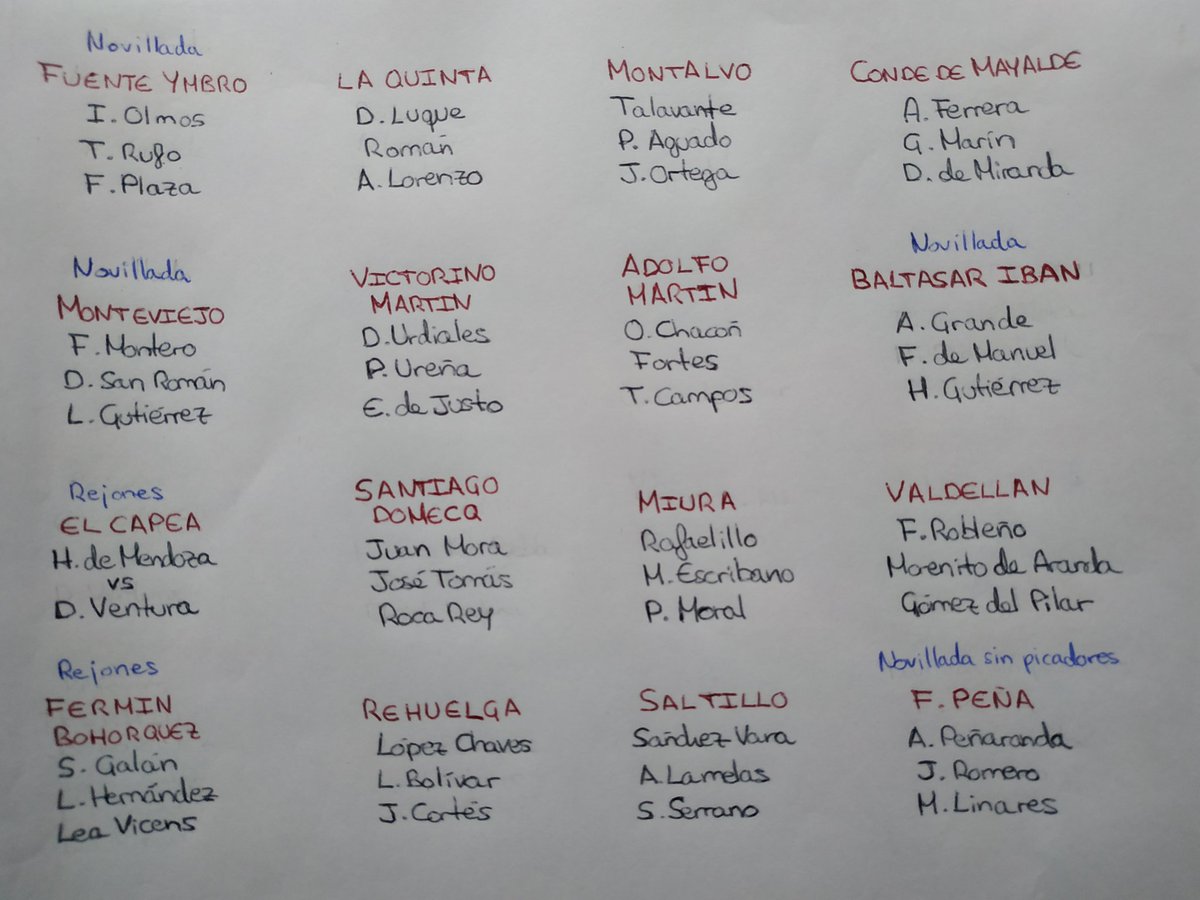 Novillada
FUENTE YMBRO
I. Olmos
T. Rufo
F. Plaza
LA QUINTA
D. Luque
Román
A. Lorenzo
MONTALVO
Talavante
P. Aguado
J. Ortega
CONDE DE MAYALDE
A. Ferrera
G. Marín
D. de Miranda
Novillada
MONTEVIEJO
F. Montero
D. San Román
L. Gutiérrez
VICTORINO
MARTIN
D. Urdiales
P. Ureña
E. de Justo
ADOLFO
MARTIN
O. Chacón
Fortes
T. Campos
Novillada
BALTASAR IBAN
A. Grande
F. de Manuel
H. Gutiérrez
Rejones
EL CAPEA
H. de Mendoza
vs
D. Ventura
SANTIAGO
DOMECQ
Juan Mora
José Tomás
Roca Rey
MIURA
Rafaelillo
M. Escribano
P. Moral
VALDELLAN
F. Robleño
Morenito de Aranda
Gómez del Pilar
Rejones
FERMIN
BOHORQUEZ
S. Galán
L. Hernández
Lea Vicens
REHUELGA
López Chaves
L. Bolívar
J. Cortés
SALTILLO
Sánchez Vara
A. Lamelas
S. Serrano
Novillada sin picadores
F. PEÑA
A. Peñaranda
J. Romero
M. Linares